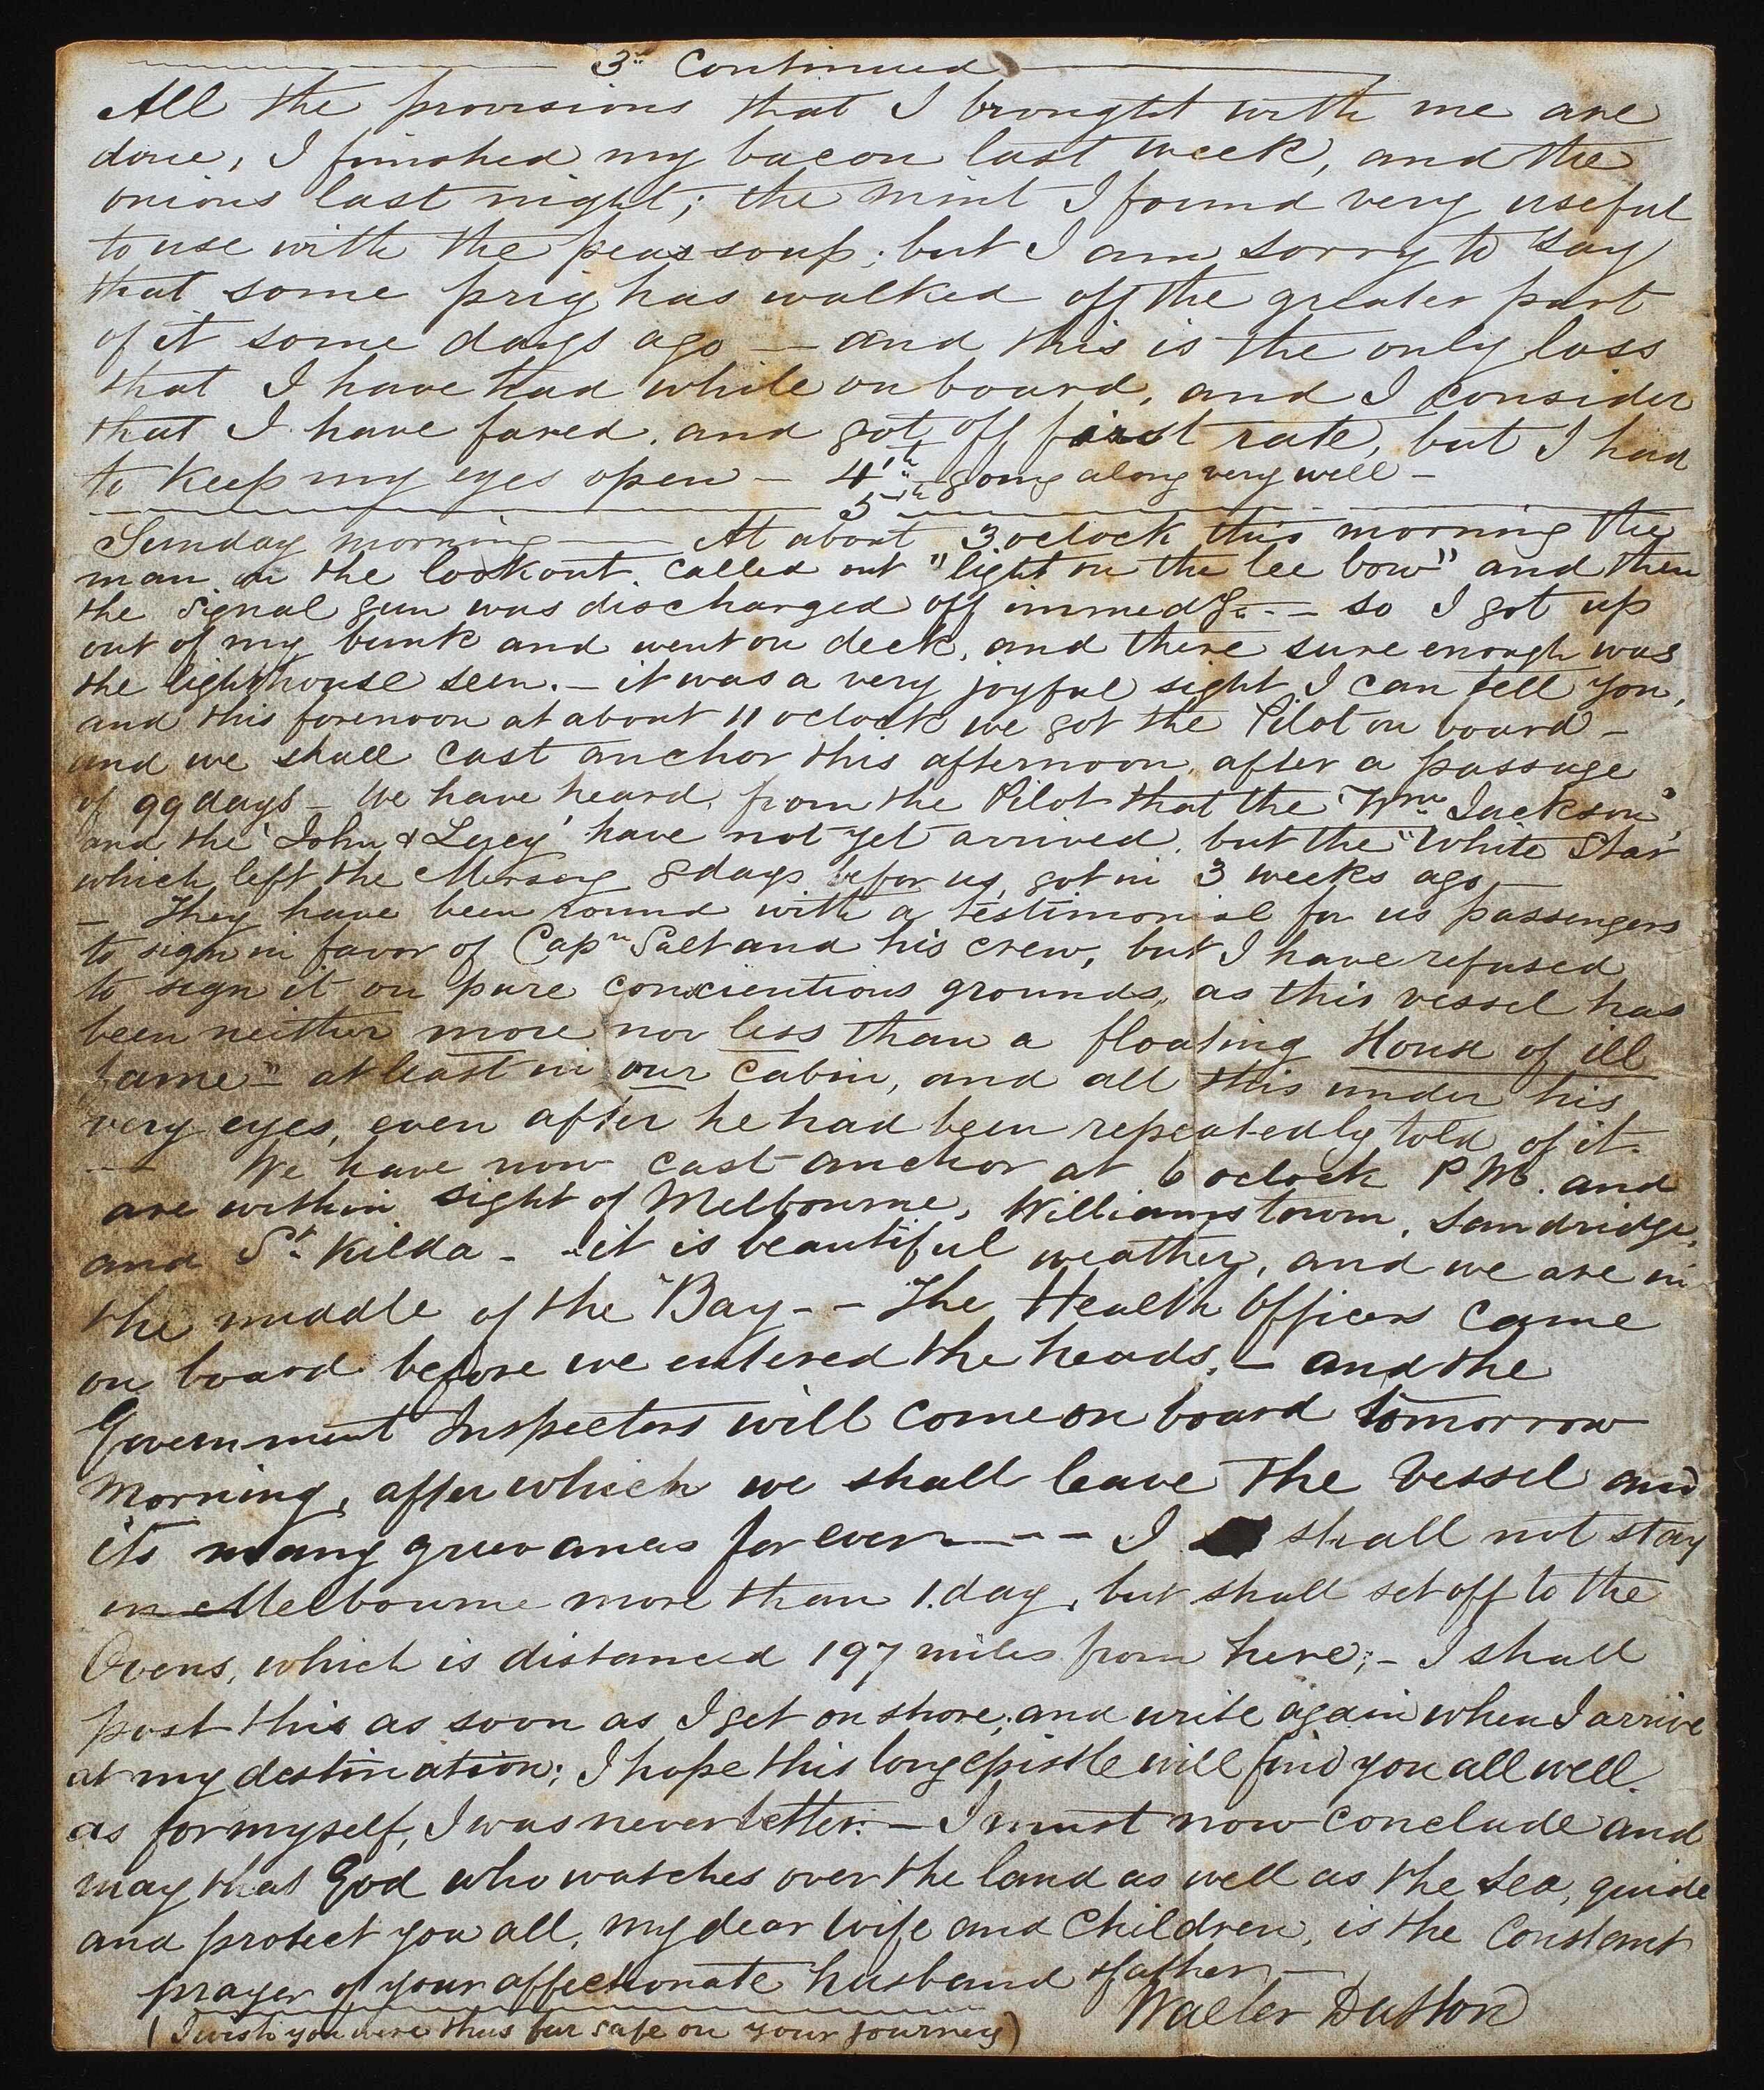 3rd Continued
All the provisions that I brought with me are
done, I finished my bacon last week, and the
onions last night; the mint I found very useful
to use with the peas soup; but I am sorry to say
that some prig has walked off the greater part
of it some days ago — and this is the only loss
that I have had while on board, and I consider
that I have fared, and got off first rate, but I had
to keep my eyes open — 4th going along very well —
5th
Sunday morning — At about 3 oclock this morning the
man on the lookout called out "light on the lee bow" and then
the signal gun was discharged off immedy. — so I got up
out of my bunk and went on deck, and there sure enough was
the lighthouse seen. — it was a very joyful sight I can tell you,
and this forenoon at about 11 oclock we got the Pilot on board —
and we shall cast anchor this afternoon, after a passage
of 99 days — We have heard from the Pilot that the "Wm Jackson",
and the 'John & Lucy' have not yet arrived, but the "White Star"
which left the Mersey 8 days befor us, got in 3 weeks ago —
— They have been round with a testimonial for us passengers
to sign in favor of Capn Salt and his crew, but I have refused
to sign it on pure conscientious grounds, as this vessel has
been neither more nor less than a floating House of ill
fame" — at least in our cabin, and all this under his
very eyes, even after he had been repeatedly told of it.
— We have now cast anchor at 6 oclock P.M. and
are within sight of Melbourne, Williamstown, Sandridge,
and St. Kilda — it is beautiful weather, and we are in
the middle of the Bay — — The Health Officers came
on board before we entered the heads, — and the
Government Inspectors will come on board tomorrow
morning, after which we shall leave the Vessel and
its many grievances for ever — — — I shall not stay
in Melbourne more than 1 day, but shall set off to the
Ovens, which is distanced 197 miles from here; — I shall
post this as soon as I get on shore, and write again when I arrive
at my destination; I hope this long epistle will find you all well.
as for myself, I was never better. — I must now conclude and
may that God who watches over the land as well as the sea, guide
and protect you all, my dear wife and Children, is the Constant
prayer of your affectionate husband & father —
Walter Dutton
(I wish you were thus far safe on your journey)